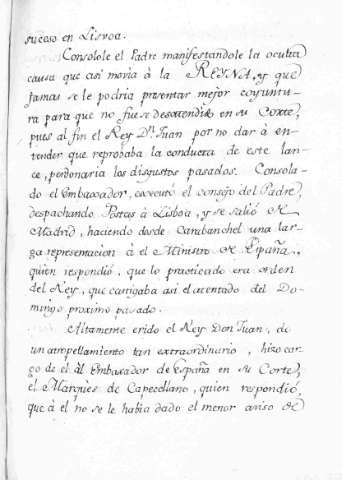 suceso en Lisboa.
Consolole el Padre manifestandole la oculta
causa que asi movia à la REYNA, y que
jamas se le podria presentar mejor coyuntu-
ra para que no fuese desatendido en su Corte,
pues al fin el Rey Dn. Juan por no dar à en-
tender que reprobaba la conducta de este lan-
ce, perdonaria los disgustos pasados. Consola-
do el Embaxador, executó el consejo del Padre,
despachando Postas à Lisboa, y se salió de
Madrid, haciendo desde Carabanchel una lar-
ga representacion à el Ministro de España,
quien respondió, que lo practicado era orden
del Rey, que castigaba asi el atentado del Do-
mingo proximo pasado.
Altamente erido el Rey Don Juan, de
un atropellamiento tan extraordinario, hizo car-
go de el al Embaxador de España en su Corte,
el Marqués de Capecelano, quien respondió,
que à el no se le habia dado el menor aviso de